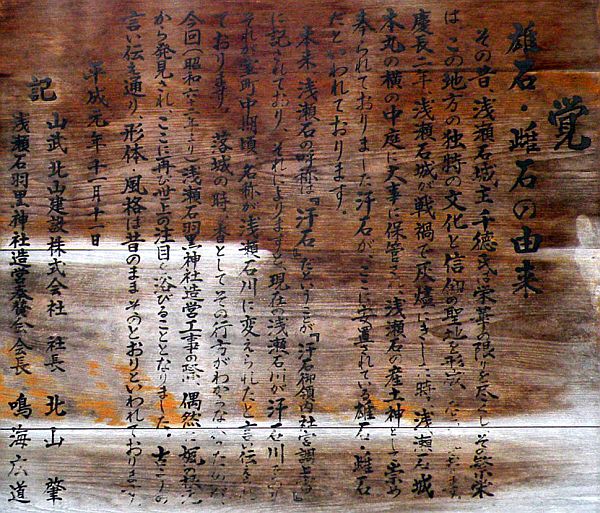 覚
雄石・雌石の由来
その昔、浅瀬石城主、千徳氏は栄華の限りを尽くし、その繁栄
は、この地方の独特の文化と信仰の聖地を形成
慶長二年、浅瀬石城が戦禍で灰燼にきした時、浅瀬石城
本丸の横の中庭に大事に保管され、浅瀬石の産土神として崇め
奉られておりました汗石が、ここに安置されている雄石・雌石
だといわれております。
本来、浅瀬石の呼称は『汗石』ということが『汗石御領内社宮調
に記されており、それによりますと、現在の浅瀬石川が汗石川であり
それが室町中期頃、名称が浅瀬石川に変えられたと言い伝えられ
ております。落城の時、
としてその行方がわからない
今回(昭和六十
浅瀬石羽黒神社造営工事の際、偶然に
から発見され、ここに再び世
の注目を浴びることとなりました。
言い伝え通り、形体・風格は昔のまま、そのとおりといわれております。
平成元年十一月十一日
記
山武北山建設株式会社 社長 北山 肇
浅瀬石羽黒神社造営奉賛会会長 鳴海広道